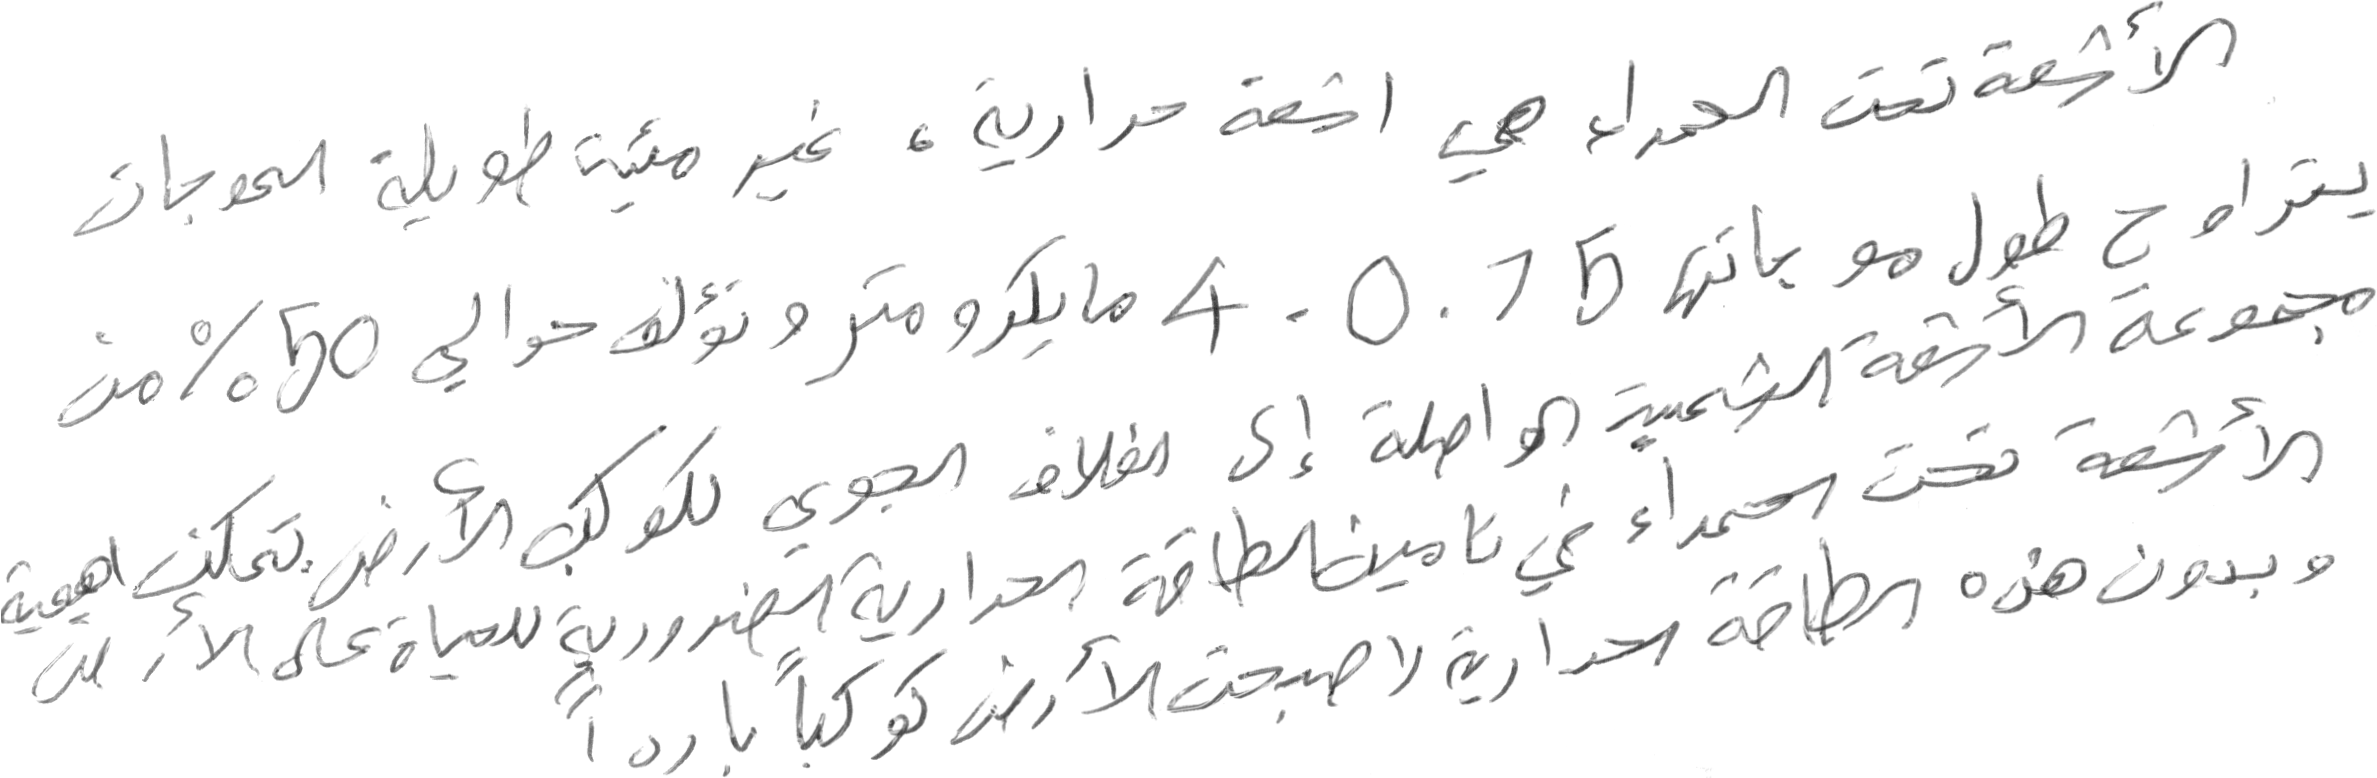 الأشعة تحت الحمراء هي اشعة حرارية، غير مئية طويلة الموجات
يتراوح طول موجاتها 0.75 - 4 مايكرومتر وتؤلف حوالي 50% من
مجموعة الأشعة الشمسية الواصلة إلى الغلاف الجوي لكوكب الأرض. تكمن اهمية
الأشعة تحت الحمراء في تامين الطاقة الحرارية الضرورية للحياة على الأرض
وبدون هذه الطاقة الحرارية لاصبحت الأرض كوكباً بارداً